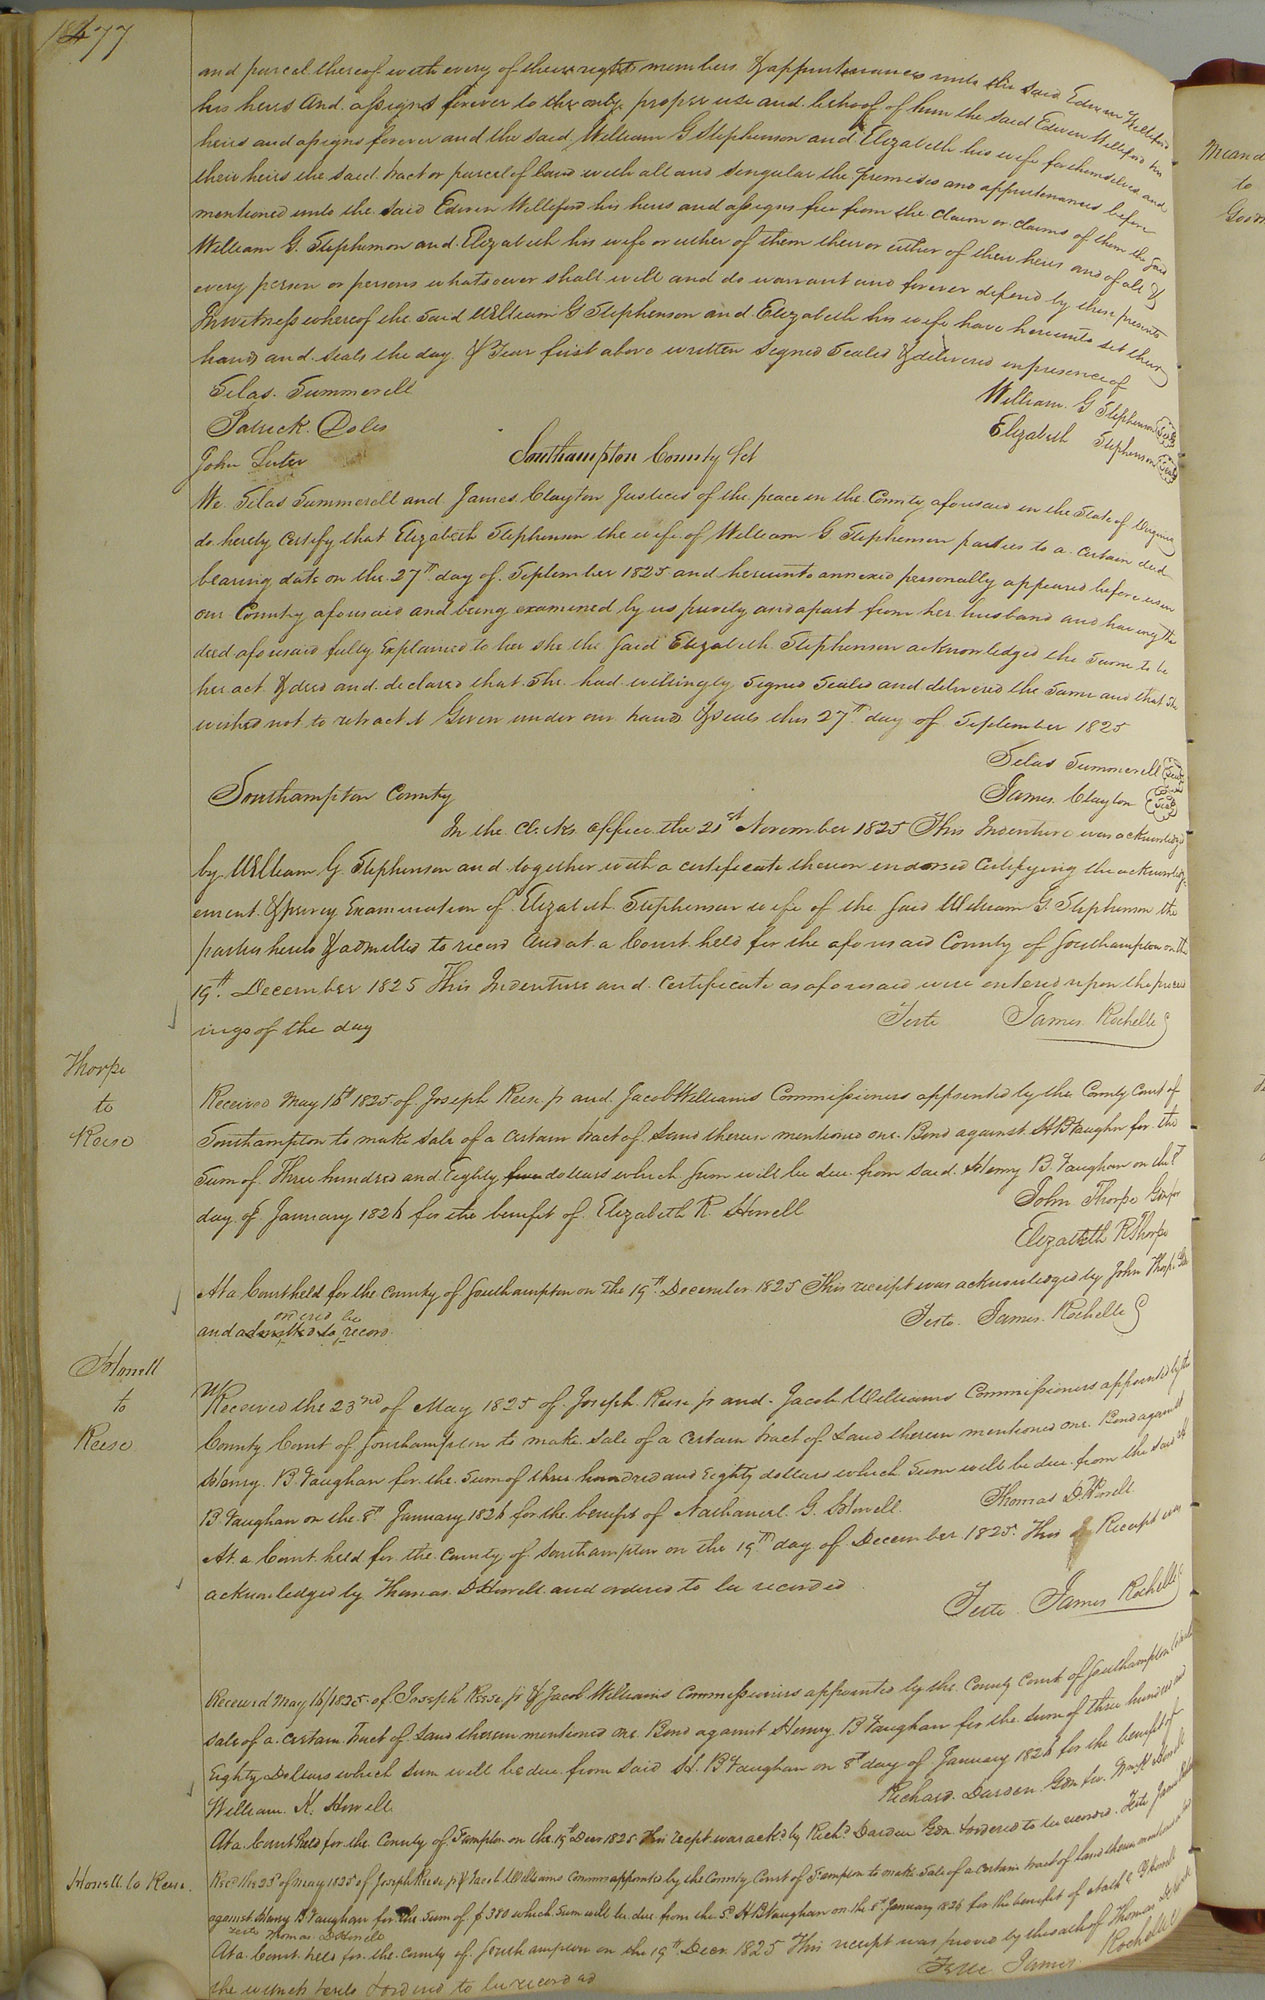 477
and parcel thereof with every of their rights members & appurtenances unto the said Edwin Williford
his heirs and assigns forever to the only proper use and behoof of him the said Edwin Williford his
heirs and assigns forever and the said William G Stephenson and Elizabeth his wife for themselves and
their heirs the said tract or parcel of land with all and singular the premises and appurtenances before
mentioned unto the said Edwin Williford his heirs and assigns free from the claim or claims of them the said
William G. Stephenson and Elizabeth his wife or either of them their or either of their heirs and of all &
every person or persons whatsoever shall will and do warrant and forever defend by these presents
In witness whereof the said William G Stephenson and Elizabeth his wife have hereunto set their
hands and seals the day & Year first above written Signed Sealed & delivered in presence of
Silas. Summerell
William. G Stephenson Seal
Patrick. Doles
Elizabeth Stephenson Seal
John Luter
Southampton County Sct
We. Silas Summerell and James Clayton Justices of the peace in the County aforesaid in the State of Virginia
do hereby Certify that Elizabeth Stephenson the wife of William G Stephenson parties to a certain deed
bearing date on the 27th day of September 1825 and hereunto annexed personally appeared before us in
our County aforesaid and being examined by us privily and apart from her husband and having the
deed aforesaid fully Explained to her she the said Elizabeth Stephenson acknowledged the same to be
her act & deed and declared that She had willingly Signed Sealed and delivered the same and that she
wished not to retract it Given under our hands & seals this 27th day of September 1825
Silas Summerell Seal
James Clayton Seal
Southampton County
In the Clerks office the 21st November 1825 This Indenture was acknowledged
by William G. Stephenson and together with a certificate thereon endorsed Certifying the acknowledg-
ement & privy Examination of Elizabeth Stephenson wife of the said William G. Stephenson the
parties hereto & admitted to record And at a Court held for the aforesaid County of Southampton on the
19th. December 1825 This Indenture and Certificate as aforesaid were entered upon the proceed
ings of the day
Teste James Rochelle
Thorpe
to
Reese
Received May 16th 1825 of Joseph Reese jr and Jacob Williams Commissioners appointed by the County Court of
Southampton to make sale of a certain tract of land therein mentioned one Bond against H B Vaughn for the
Sum of Three hundred and Eighty dollars which sum will be due from said Henry B. Vaughan on the 8th
day of January 1826 for the benefit of Elizabeth R. Howell
John Thorpe Gdn for
Elizabeth R Thorpe
At a Court held for the County of Southampton on the 19th December 1825 This receipt was acknowledged by John Thorpe
ordered be
and admitted to record.
Teste. James. Rochelle
Howell
to
Reese
Received the 23nd of May 1825 of Joseph Reese jr and Jacob Williams Commissioners appointed by the
County Court of Southampton to make sale of a certain tract of Land therein mentioned one Bond against
Henry. B Vaughan for the Sum of three hundred and Eighty dollars which sum will be due from the said H
B. Vaughan on the 8th January 1826 for the benefit of Nathaniel G. Howell
Thomas D. Howell
At a Court held for the County of Southampton on the 19th day of December 1825. This Receipt was
acknowledged by Thomas D Howell and ordered to be recorded
Teste James Rochelle
Received May 16/1825 of Joseph Reese jr & Jacob Williams Commissioners appointed by the County Court of Southampton
sale of a certain tract of Land therein mentioned one Bond against Henry B Vaughan for the sum of three hundred and
Eighty Dollars which sum will be due from said H. B Vaughan on 8th day of January 1826 for the benefit of
William. K. Howell
Richard Darden Gdn for Wm K Howell
At a Court held for the County of S'ampton on the 19th Decr 1825 This receipt was ackd by Richd Darden Gdn & ordered to be recorded. Teste James
Howell to Reese.
Recd the 23d of May 1825 of Joseph Reese jr & Jacob Williams Commrs appointed by the County Court of S'ampton to make sale of a certain tract of land therein mentioned
against Henry B Vaughan for the Sum of $380 which Sum will be due from the sd H B Vaughan on the 8th January 1826 for the benefit of
Teste Thomas D Howell
At a Court held for the County of Southampton on the 19th Decr. 1825 This receipt was proved by the oath of Thomas
the witness hereto & ordered to be recorded
Teste James Rochelle
to